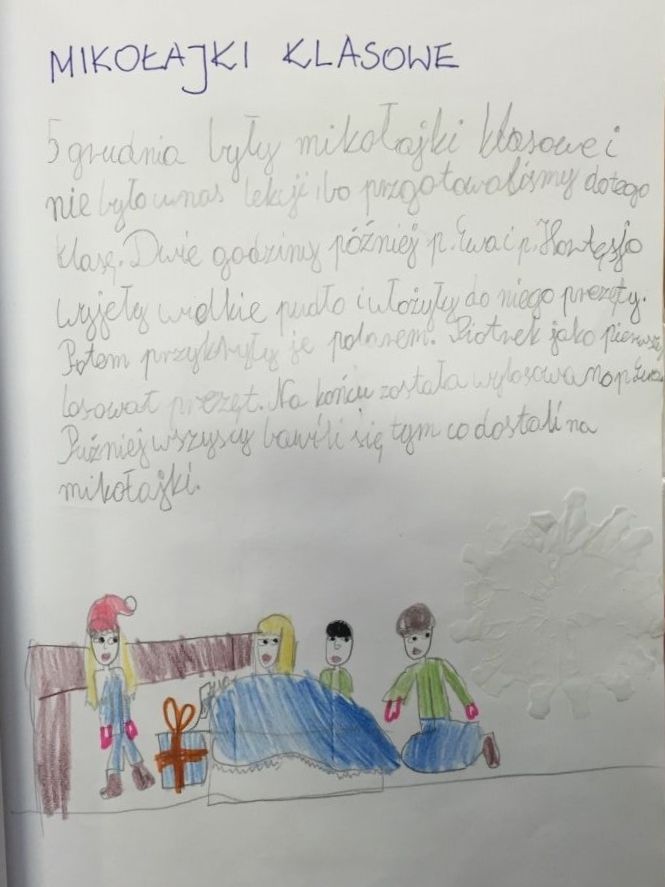 MIKOŁAJKI KLASOWE
5 grudnia były mikołajki klasowe i
nie było u nas lekcji, bo przgotowaliśmy do tego
klasę. Dwie godziny później p. Ewa i p.
wyjęły wielkie pudło i włożyły do niego prezęty.
Potem przykryły je polarem. Piotrek jako pierwszy
losował prezęt. Na końcu została wylosowana p. Ewa.
Puźniej wszyscy bawili się tym co dostali na
mikołajki.